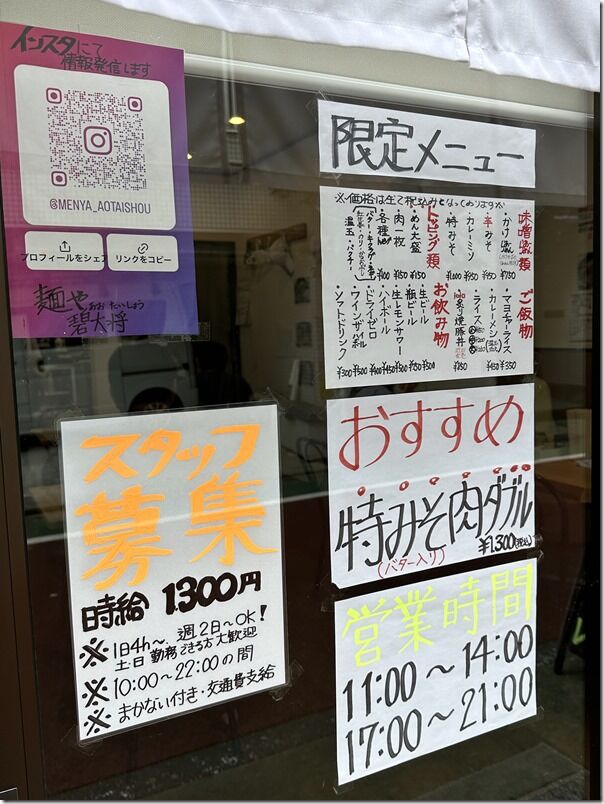 インスタにて
情報発信します
@MENYA_AOTAISHOU
プロフィールをシェア
リンクをコピー
麺や
あおたいしょう
碧大将
限定メニュー
味噌らぁ麺類
・辛みそ
・カレーミソ
・特みそ
トッピング類
・めん大盛
・肉一枚
・各種
ご飯物
・マヨチャーライス
・カレーメシ
・ライス
・炙り焼豚丼
お飲み物
・生ビール
・瓶ビール
・生レモンサワー
・ハイボール
・ドライゼロ
・ソフトドリンク
おすすめ
特みそ肉ダブル
(バター入り)
¥1,300(税込)
営業時間
11:00～14:00
17:00～21:00
スタッフ
募集
時給 1300円
※ 1日4h～、週2日～OK!
土・日勤務できる方大歓迎
※ 10:00～22:00の間
※ まかない付き・交通費支給